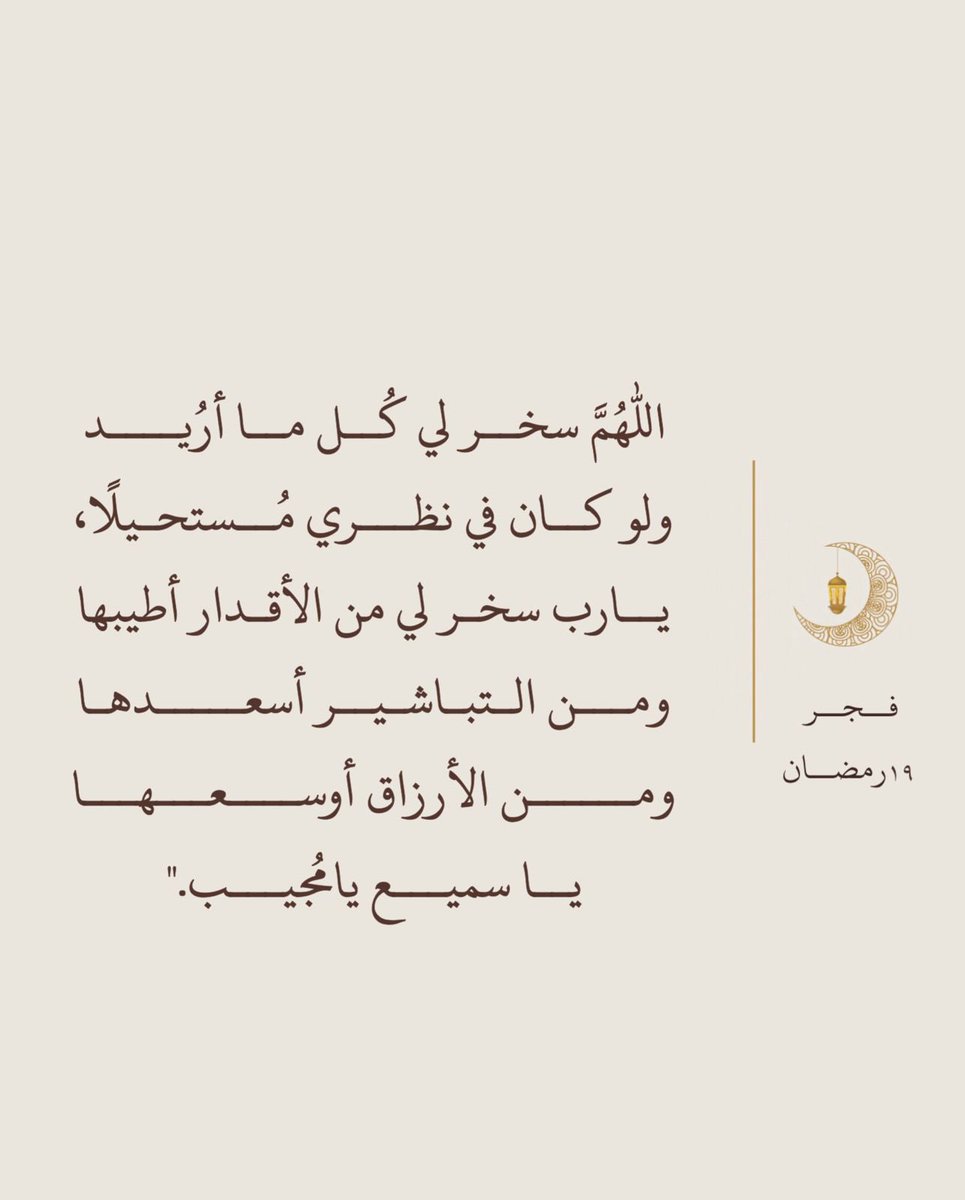 اللّٰهُمَّ سخر لي كُل ما أرُيد
ولو كان في نظري مُستحيلًا،
يارب سخر لي من الأقدار أطيبها
ومن التباشير أسعدها
ومن الأرزاق أوسعها
يا سميع يامُجيب."
فجر
١٩رمضان